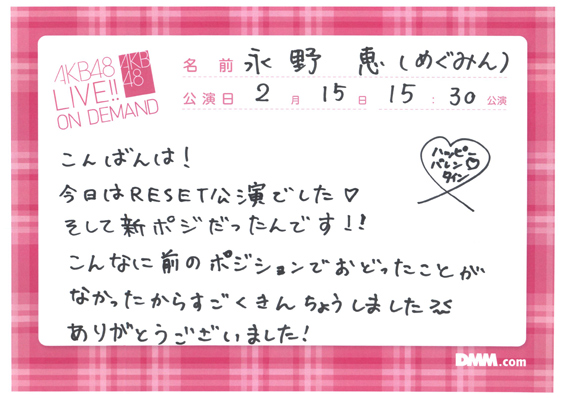 AKB48
LIVE!!
ON DEMAND
AKB
48
名前 永野 恵(めぐみん)
公演日 2月15日 15:30公演
ハッピー
バレン
タイン
こんばんは!
今日はRESET公演でした♡
そして新ポジだったんです!!
こんなに前のポジションでおどったことが
なかったからすごくきんちょうしました
ありがとうございました!
DMM.com